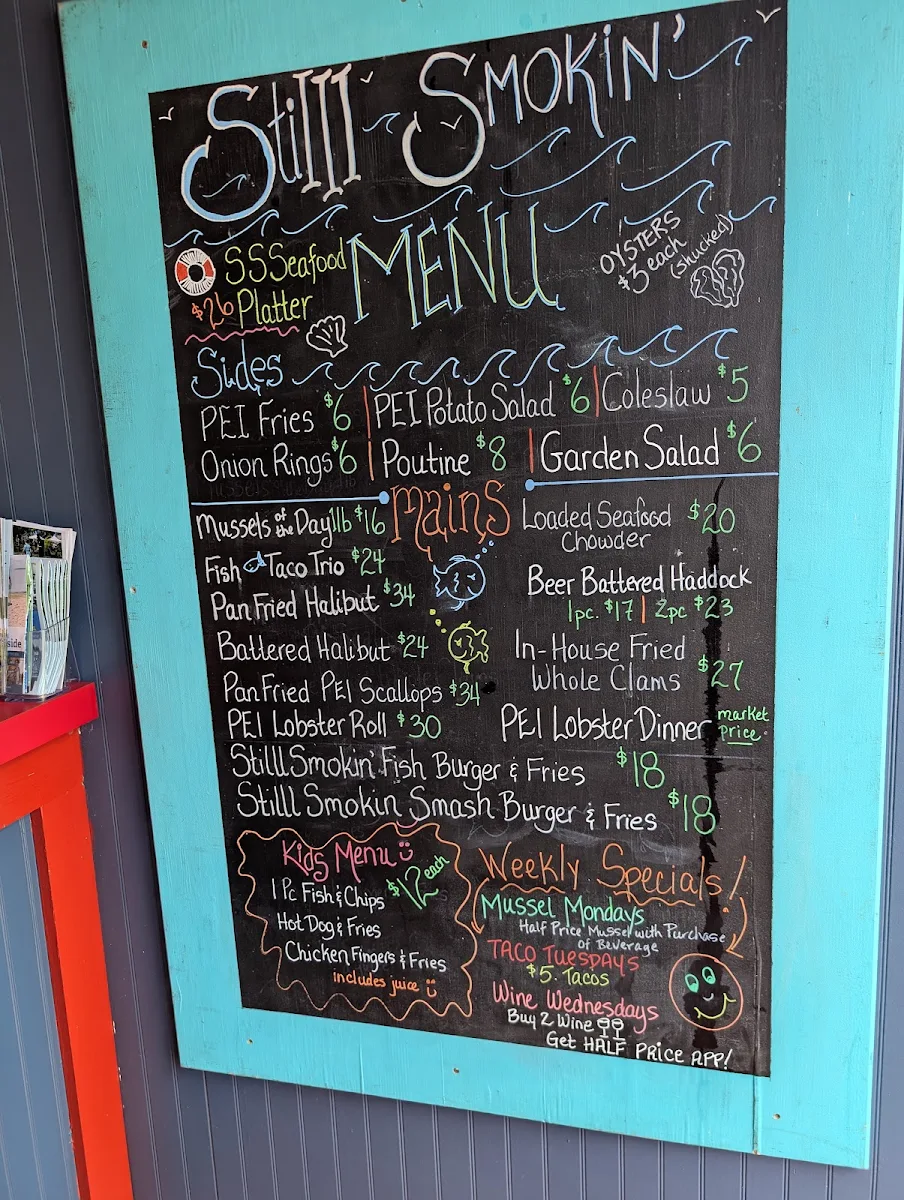 Stilll Smokin'
MENU
SS Seafood
$26 Platter
OYSTERS
$3 each
(shucked)
Sides
PEI Fries $6 | PEI Potato Salad $6 | Coleslaw $5
Onion Rings $6 | Poutine $8 | Garden Salad $6
Mains
Mussels of the Day 1lb $16
Fish Taco Trio $24
Pan Fried Halibut $34
Battered Halibut $24
Pan Fried PEI Scallops $34
PEI Lobster Roll $30
Loaded Seafood $20
Chowder
Beer Battered Haddock
1pc. $17 | 2pc $23
In-House Fried
Whole Clams $27
PEI Lobster Dinner market price.
Still Smokin' Fish Burger & Fries $18
Stilll Smokin Smash Burger & Fries $18
Kids Menu
$12 each
1 Pc Fish & Chips
Hot Dog & Fries
Chicken Fingers & Fries
includes juice
Weekly Specials!
Mussel Mondays
Half Price Mussel with Purchase
of Beverage
TACO TUESDAYS
$5. Tacos
Wine Wednesdays
Buy 2 Wine
Get HALF PRICE APP!